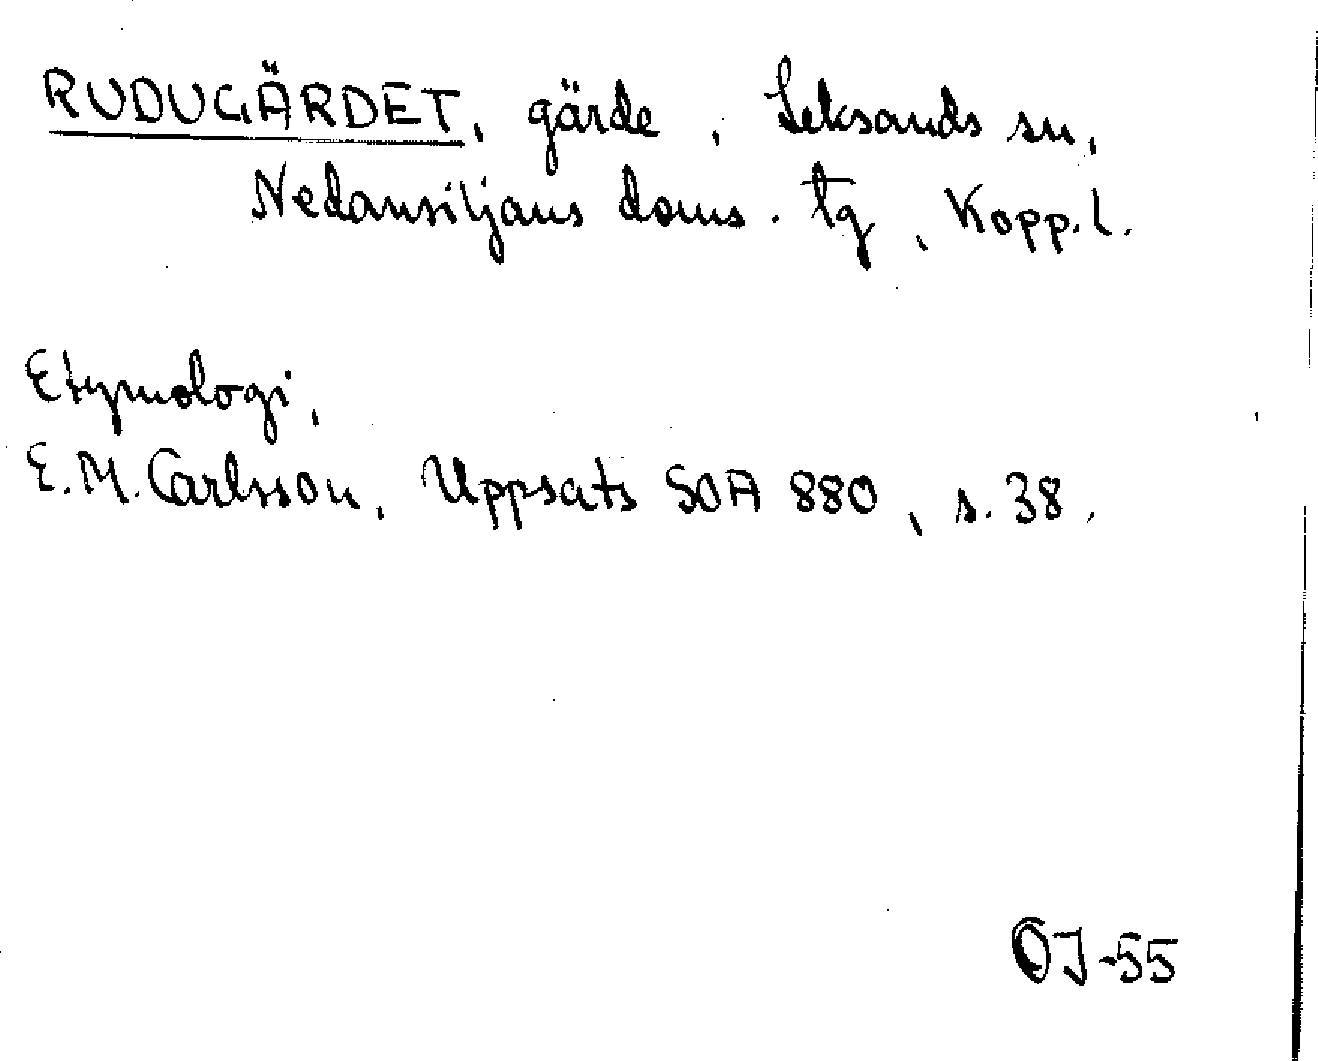 RUDUGÄRDET, gärde, Leksands sn,
Nedansiljans doms. tg, Kopp. l.
Etymologi,
E.M. Carlsson, Uppsats SOA 880, s. 38.
OJ-55